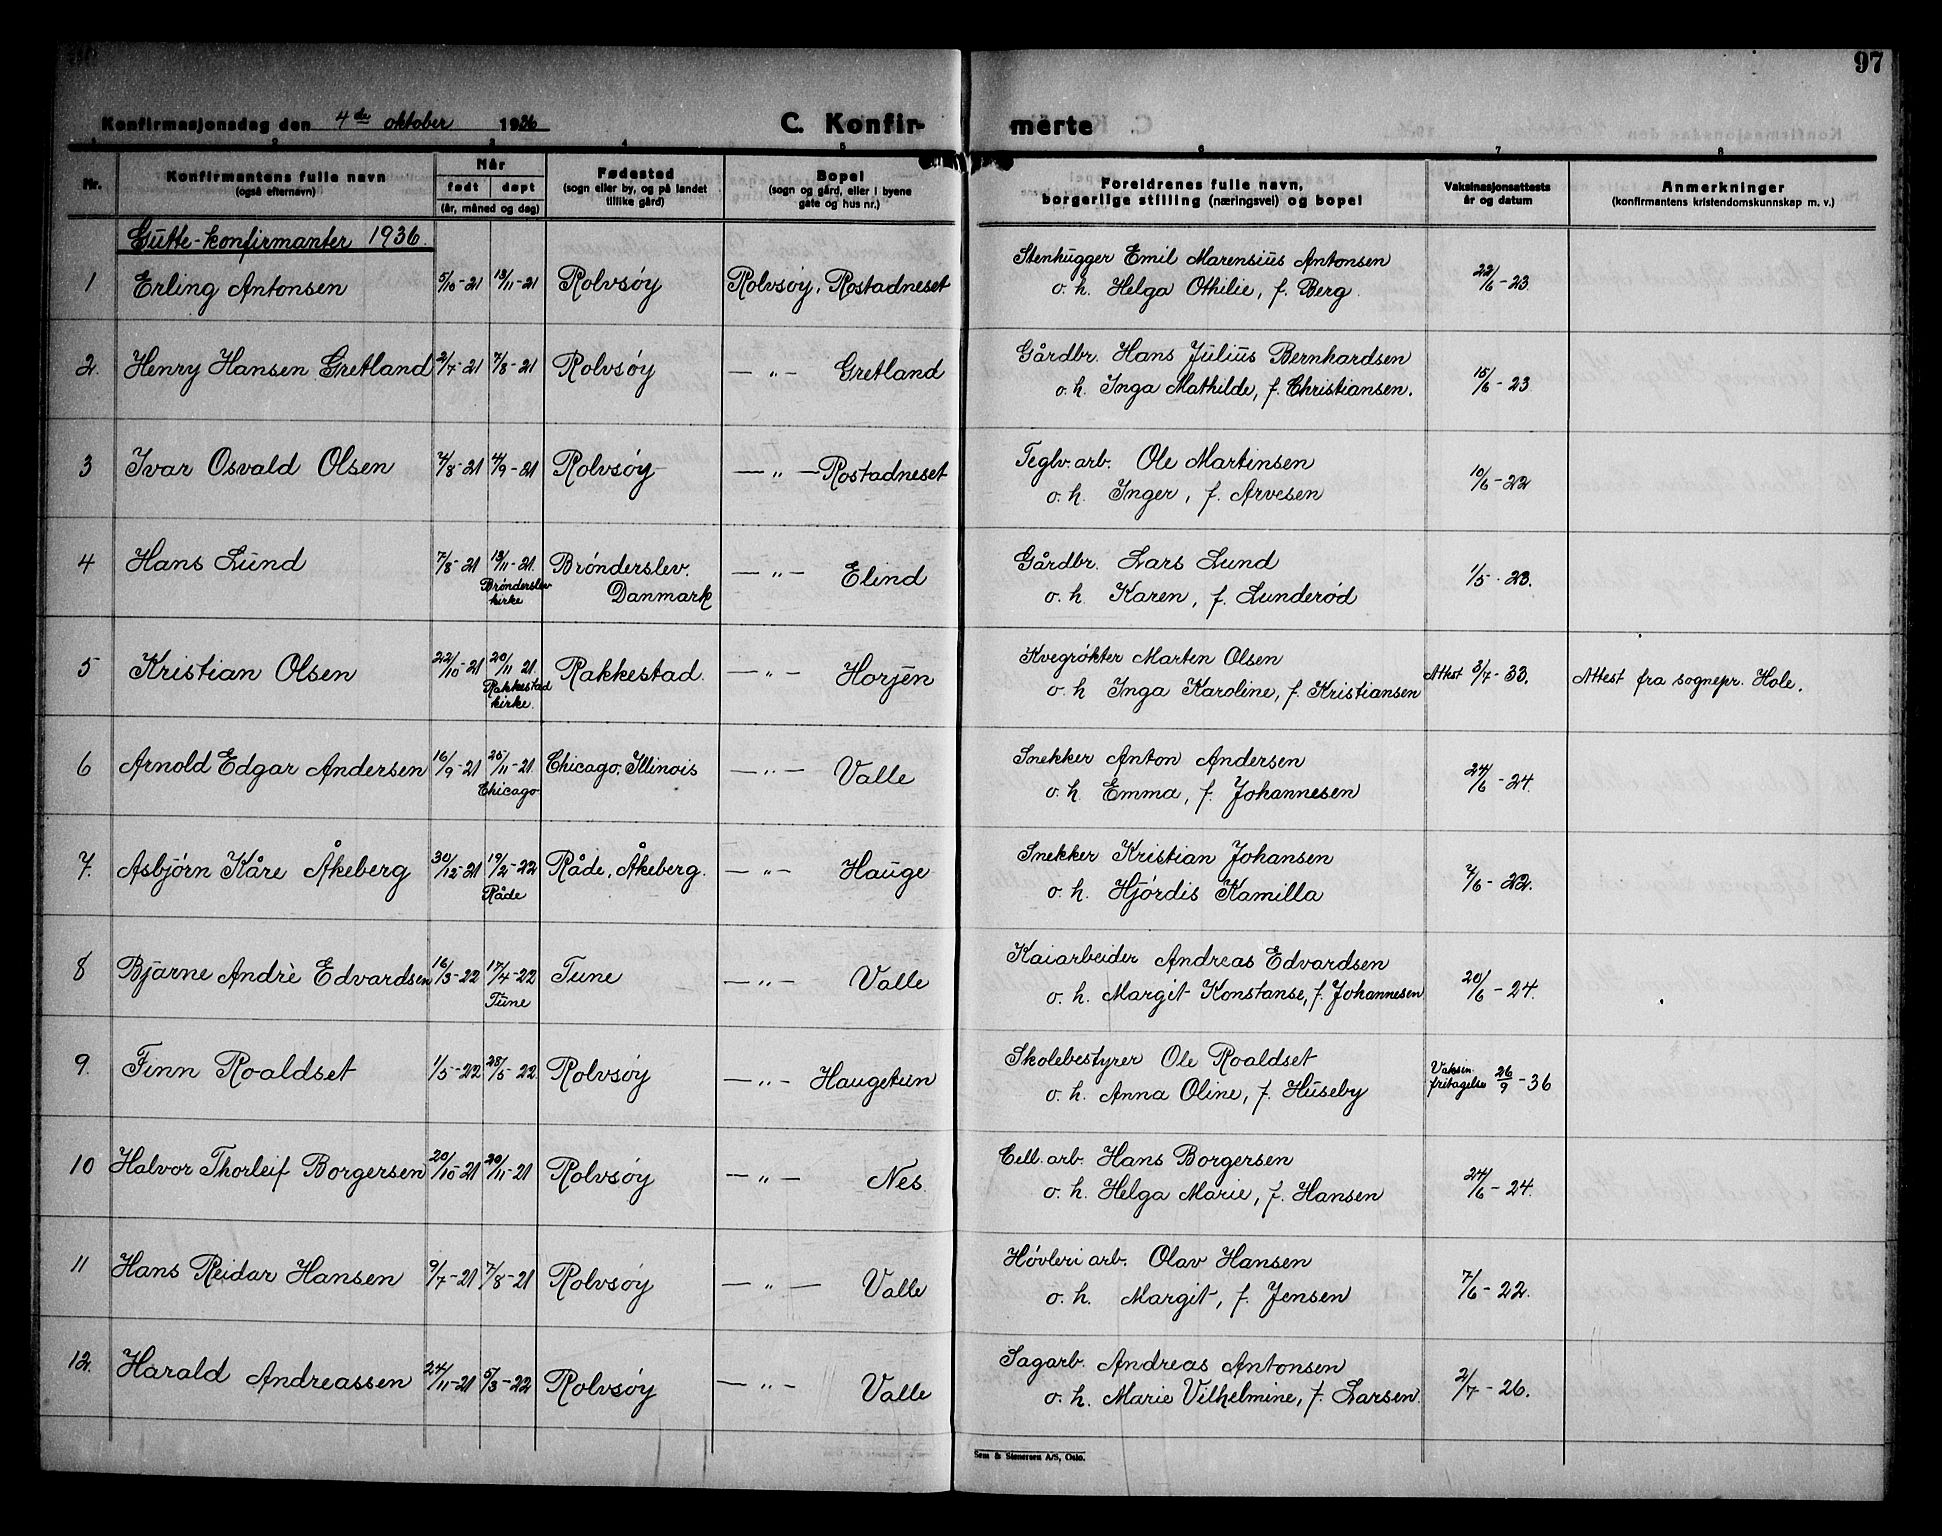 97
Konfirmasjonsdag den 4de oktober 1936
C. Konfir-
merte
1 2 3 4 5 6 7 8
Nr.
Konfirmantens fulle navn
(også efternavn)
Når
født døpt
(år, måned og dag)
Fødested
(sogn eller by, og på landet
tillike gård)
Bopel
(sogn og gård, eller i byene
gate og hus nr.)
Foreldrenes fulle navn,
borgerlige stilling (næringsvei) og bopel
Vaksinasjonsattests
år og datum
Anmerkninger
(konfirmantens kristendomskunnskap m. v.)
Gutte-konfirmanter 1936.
1 Erling Antonsen 5/10-21 13/11-21 Rolvsöy Rolvsöy, Rostadneset Stenhugger Emil Marensius Antonsen 22/6-23
o. h. Helga Othilie, f. Berg.
2. Henry Hansen Gretland 2/7-21 7/8-21 Rolvsöy —„— Gretland Gårdbr. Hans Julius Bernhardsen 15/6-23
o. h. Inga Mathilde, f. Christiansen.
3 Ivar Osvald Olsen 4/8-21 4/9-21 Rolvsöy —„— Rostadneset Teglv.arb. Ole Martinsen 10/6-22
o. h. Inger, f. Arvesen
4 Hans Lund 7/8-21 13/11-21. Brönderslev. —„— Elind Gårdbr. Lars Lund 1/5-23.
Brönderslev kirke Danmark o. h. Karen, f. Lunderöd
5 Kristian Olsen 22/10-21 20/11 21 Rakkestad. —„— Horjen Kvegrökter Marten Olsen Attest 3/7-33. Attest fra sognepr. Hole.
Rakkestad kirke. o. h. Inga Karoline, f. Kristiansen
6 Arnold Edgar Andersen 16/9-21 25/11-21. Chicago, Illinois —„— Valle Snekker Anton Andersen 24/6-24.
Chicago o. h. Emma, f. Johannesen
7. Asbjörn Kåre Åkeberg 30/12-21 19/2-22 Råde, Åkeberg. —„— Hauge Snekker Kristian Johansen 7/6-22.
Råde o. h. Hjördis Kamilla
8 Bjarne Andrè Edvardsen 16/3-22 17/4-22 Tune —„— Valle Kaiarbeider Andreas Edvardsen 20/6-24.
Tune o. h. Margit Konstanse, f. Johannesen
9. Finn Roaldset 1/5-22 28/5-22. Rolvsöy —„— Haugetun Skolebestyrer Ole Roaldset Vaksin. fritagelse 26/9-36
o. h. Anna Oline, f. Huseby
10 Halvor Thorleif Borgersen 20/10-21 20/11-21 Rolvsöy —„— Nes. Cell. arb. Hans Borgersen 24/6-24.
o. h. Helga Marie, f. Hansen
11 Hans Reidar Hansen 9/7-21 7/8-21 Rolvsöy —„— Valle Hövleri arb. Olav Hansen 7/6-22.
o. h. Margit, f. Jensen
12. Harald Andreassen 24/11-21 5/3-22 Rolvsöy —„— Valle Sagarb. Andreas Antonsen 2/7-26.
o. h. Marie Vilhelmine, f. Larsen.
Sem & Stenersen A/S, Oslo.